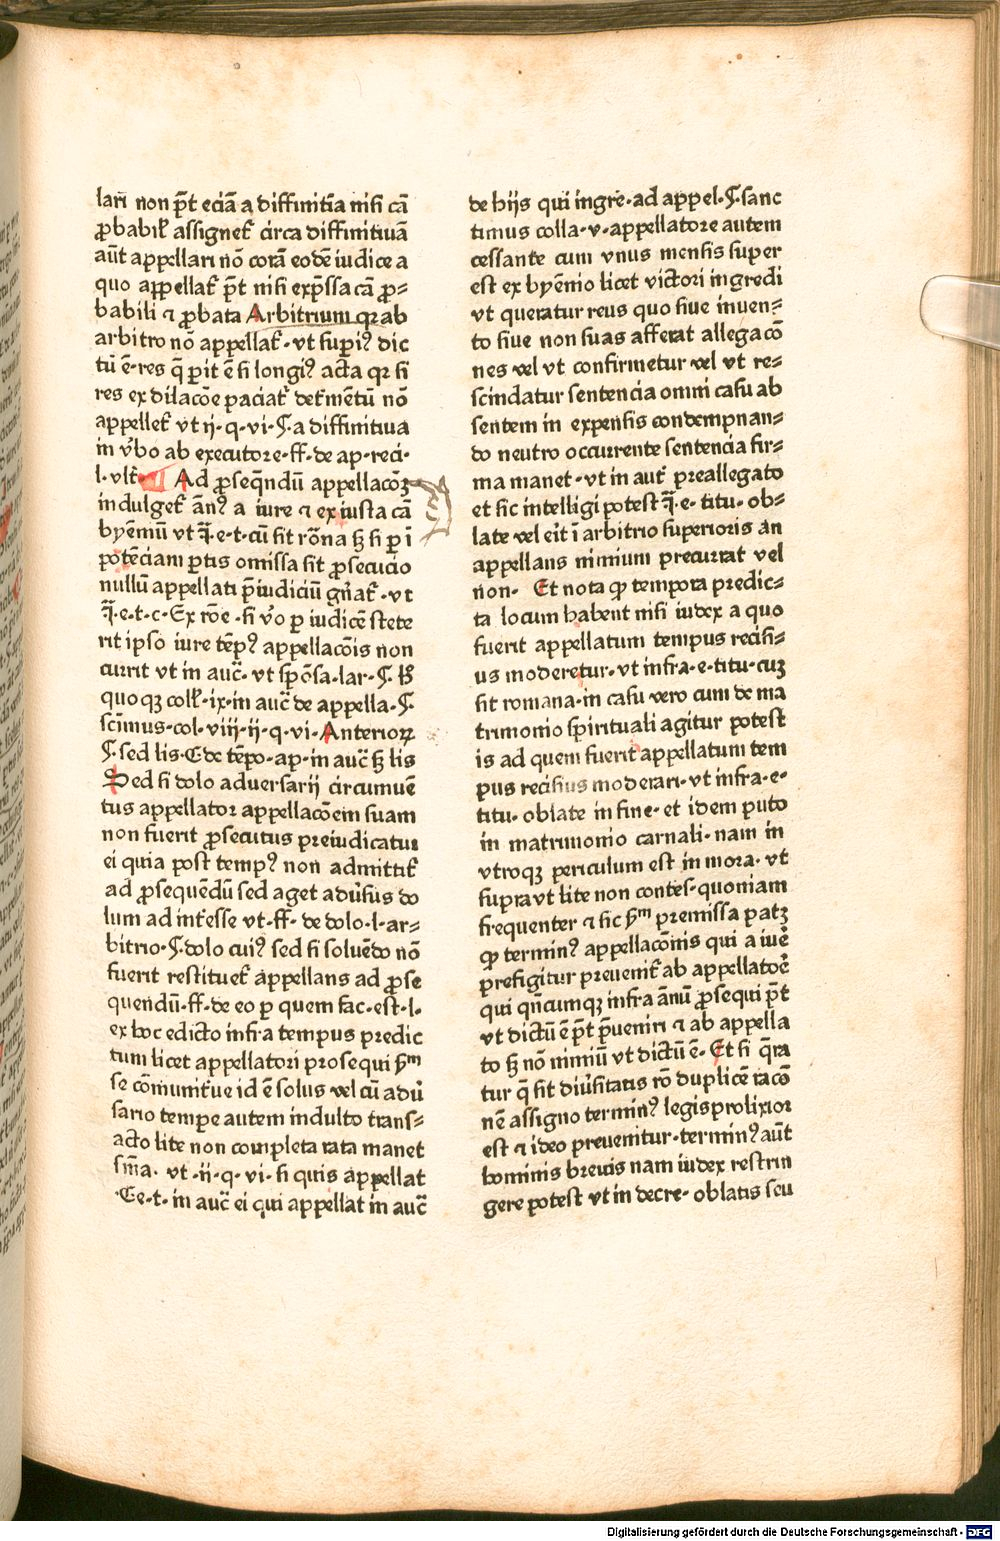 lari non p̄t eciā a diffinitīa nisi cā
ꝓbabiľ assigneť circa diffinitiuā
aūt appellari nō corā eodē iudice a
quo appellať p̄t nisi exp̄ssa cā ꝓ⸗
babili ⁊ ꝓbata Arbitrium qꝛ ab
arbitro nō appellať · vt supiꝰ dic
tū ē · res q̄ pit ē si longiꝰ acta qꝛ si
res ex dilacōe paciať deťmētū nō
appelleť vt ij · q · vi · ¶ · a diffinitiua
in v̓bo ab executore · ff · de ap · reci ·
l · vlť · Ad ꝓseq̄ndū appellacōꝫ
indulgeť ānꝰ a iure ⁊ ex iusta cā
byēniū vt ī · e · t · cū sit rōna sꝫ si ꝑ ī
potēciam ꝑtis omissa sit ꝓsecucio
nullū appellati p̄iudiciū gn̄ať · vt
ī · e · t · c · Ex rōe · si v̓o ꝑ iudicē stete
rit ipso iure tēpꝰ appellacōis non
currit vt in auc̄ · vt spōsa · lar · ¶ · ꝶ
quoqꝫ colľ · ix · in auc̄ de appella · ¶ ·
scīmus · col · viij · ij · q · vi · Anterioꝝ
¶ · sed lis · C de tēpo · ap · in auc̄ sꝫ lis
Sed si dolo adversarij circumuē
tus appellator appellacōem suam
non fuerit ꝓsecutus preiudicatur
ei quia post tempꝰ non admittiť
ad ꝓsequēdū sed aget adu̓sus do
lum ad inťesse vt · ff · de dolo · l · ar⸗
bitrio · ¶ · dolo cuiꝰ sed si soluēdo nō
fuerit restitueť appellans ad ꝓse
quendū · ff · de eo ꝑ quem fac · est · l ·
ex hoc edicto infra tempus predic
tum licet appellatori prosequi ẜm
se cōmuniťue id ē solus vel cū adu̓
sario tempe autem indulto trans⸗
acto lite non completa rata manet
sn̄īa · vt · ij · q · vi · si quis appellat
· C e · t · in auc̄ ei qui appellat in auc̄
de hijs qui ingre · ad appel · ¶ · sanc
timus colla · v · appellatore autem
cessante cum vnus mensis super
est ex byēnio licet victori ingredi
vt queratur reus quo siue inuen⸗
to siue non suas afferat allegacō
nes vel vt confirmetur vel vt re⸗
scindatur sentencia omni casu ab
sentem in expensis condempnan⸗
do neutro occurrente sentencia fir⸗
ma manet · vt in auť preallegato
et sic intelligi potest ī · e · titu · ob⸗
late vel eīt ī arbitrio superioris an
appellans nimium precurrat vel
non · Et nota ꝙ tempora predic⸗
ta locum habent nisi iudex a quo
fuerit appellatum tempus recisi⸗
us moderetur · vt infra · e · titu · cuꝫ
sit romana · in casu vero cum de ma
trimonio spirituali agitur potest
is ad quem fuerit appellatum tem
pus recisius moderari · vt infra · e ·
titu · oblate in fine · et idem puto
in matrimonio carnali · nam in
vtroqꝫ periculum est in mora · vt
supra vt lite non contes · quoniam
frequenter ⁊ sic ẜm premissa patꝫ
ꝙ terminꝰ appellacōnis qui a iu̓e
prefigitur preueniť ab appellatoē
qui qn̄cumqꝫ infra ānū ꝓsequi p̄t
vt dictū ē p̄t p̄ueniri ⁊ ab appella
to sꝫ nō nimiū vt dictū ē · Et si q̄ra
tur q̄ sit diu̓sitatis rō duplicē racō
nē assigno terminꝰ legis prolixior
est ⁊ ideo preuenitur · terminꝰ aūt
hominis breuis nam iudex restrin
gere potest vt in decre · oblatis seu
Digitalisierung gefördert durch die Deutsche Forschungsgemeinschaft - DFG